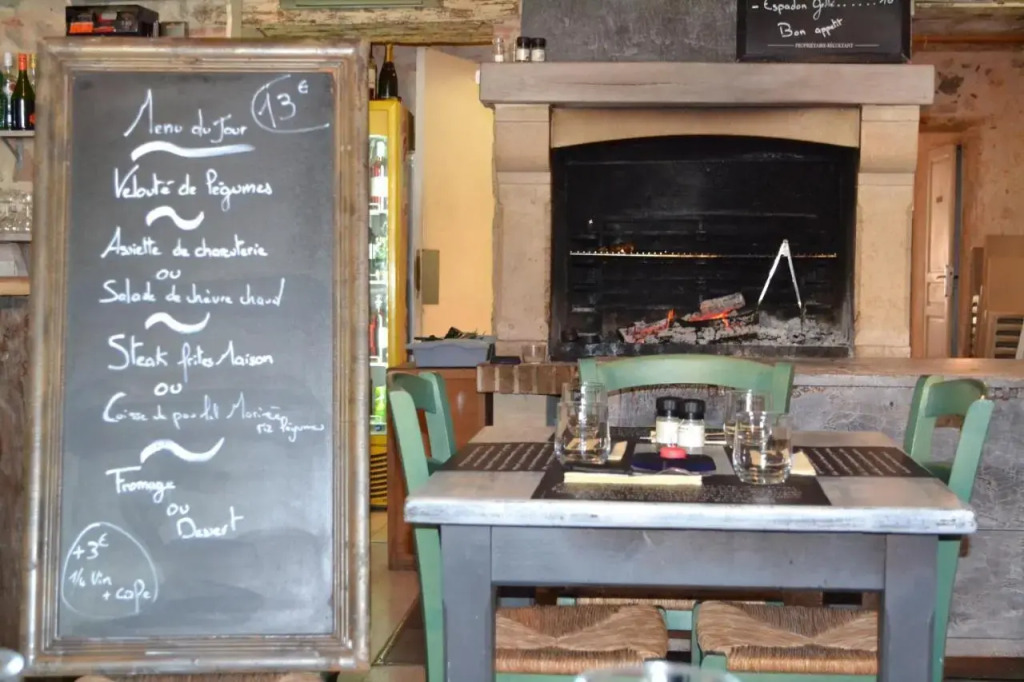 Menu du Jour
13€
Velouté de légumes
Assiette de charcuterie
ou
Salade de chèvre chaud
Steak frites Maison
ou
Cuisse de poulet Marinée
riz légumes
Fromage
ou
Dessert
+3€
1/4 Vin
+ café
- Espadon Grillé.....
Bon appétit
PROPRIÉTAIRE-RÉCOLTANT